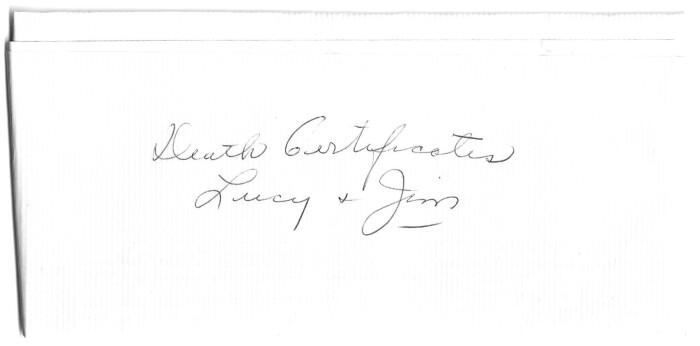 Death Certificates
Lucy + Jim